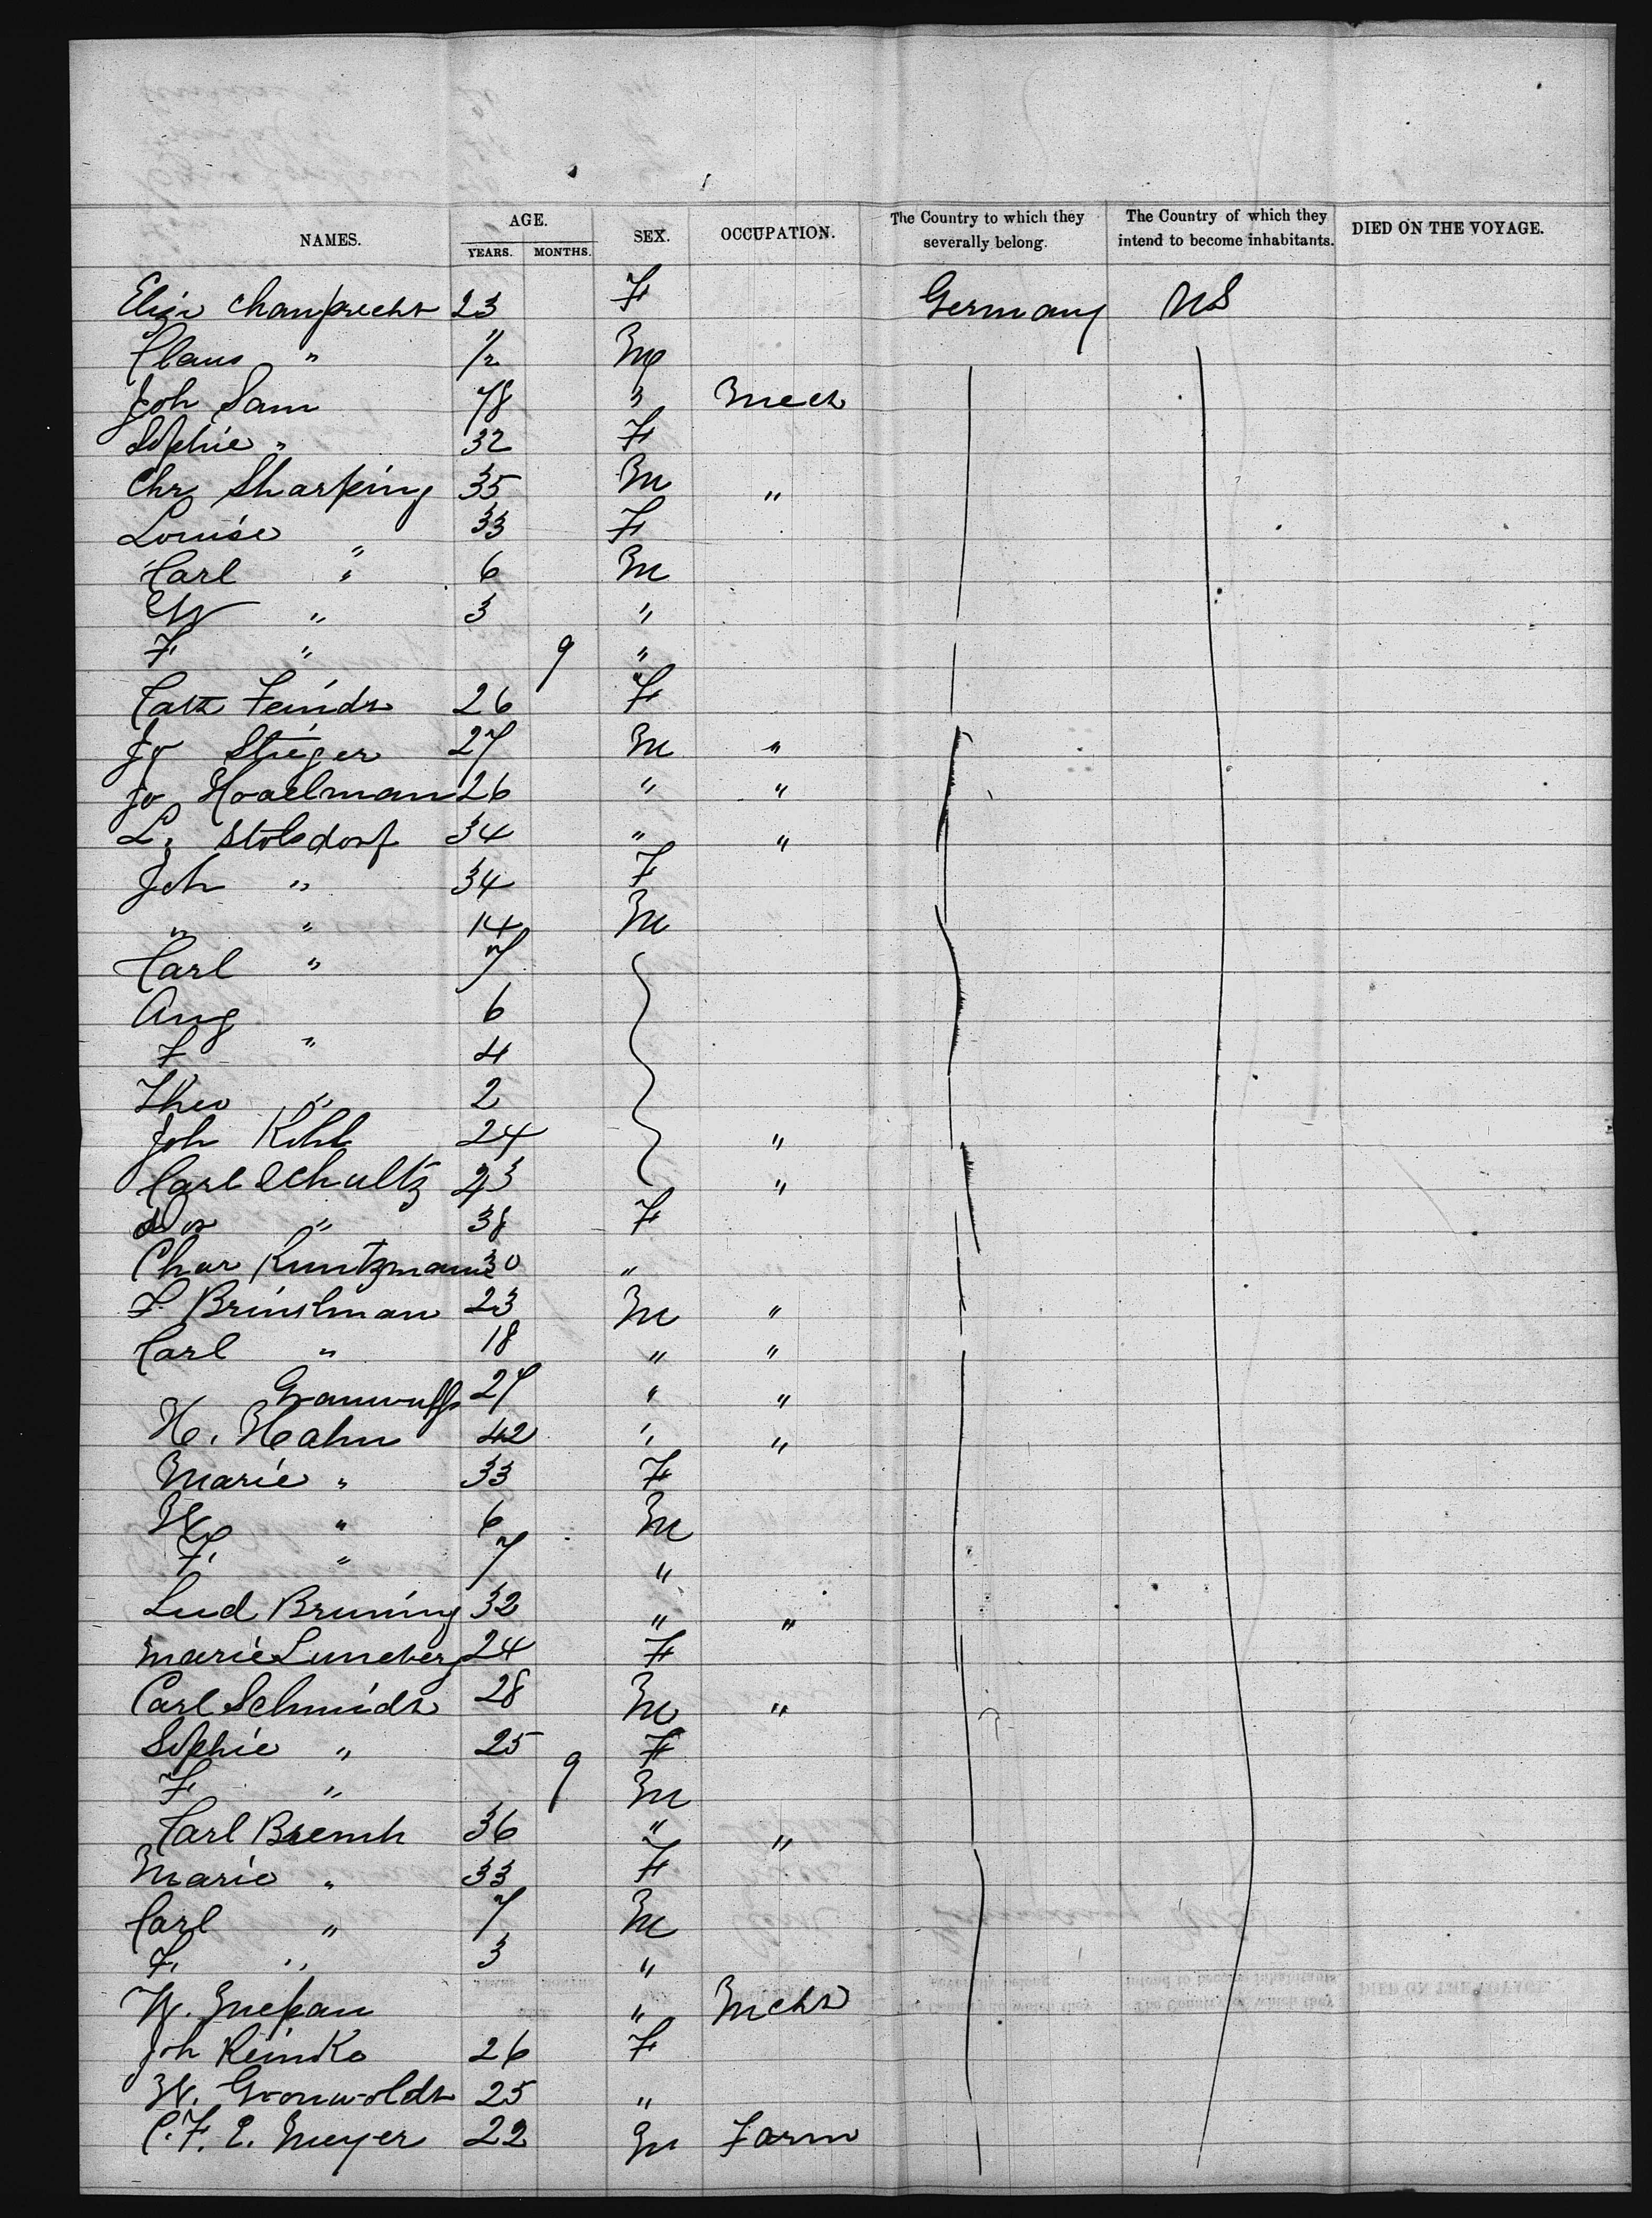 NAMES. AGE. YEARS. MONTHS. SEX. OCCUPATION. The Country to which they severally belong. The Country of which they intend to become inhabitants. DIED ON THE VOYAGE.
Eliza 23 F Germany US
Claus " 1/2 M
Joh Sam 78 " Mech
Sophie " 32 F
Chr Sharping 35 M "
Louise " 33 F
Carl " 6 M
W " 3 "
F " 9 "
Cath Feindt 26 F
Jo Stieger 27 M "
Jo 26 " "
L. Stolsdorf 34 " "
Joh " 34 F
" " 14 M
Carl " 7
Aug " 6
F " 4
Theo " 2
Joh Kohl 24 "
Carl Schultz 43 "
Do " 38 F
Char Kuntzmann 30 "
F. Brinslman 23 M "
Carl " 18 " "
27 " "
H. Hahn 42 " "
Marie " 33 F
W " 6 M
F. " 7 "
Lud Bruning 32 " "
Marie Luneberg 24 F
Carl Schmidt 28 M "
Sophie " 25 F
F " 9 M
Carl 36 " "
Marie " 33 F
Carl " 7 M
F. " 3 "
W. " Mech
Joh Reinke 26 F
W. Gronwoldt 25 "
C. F. E. Meyer 22 M Farm